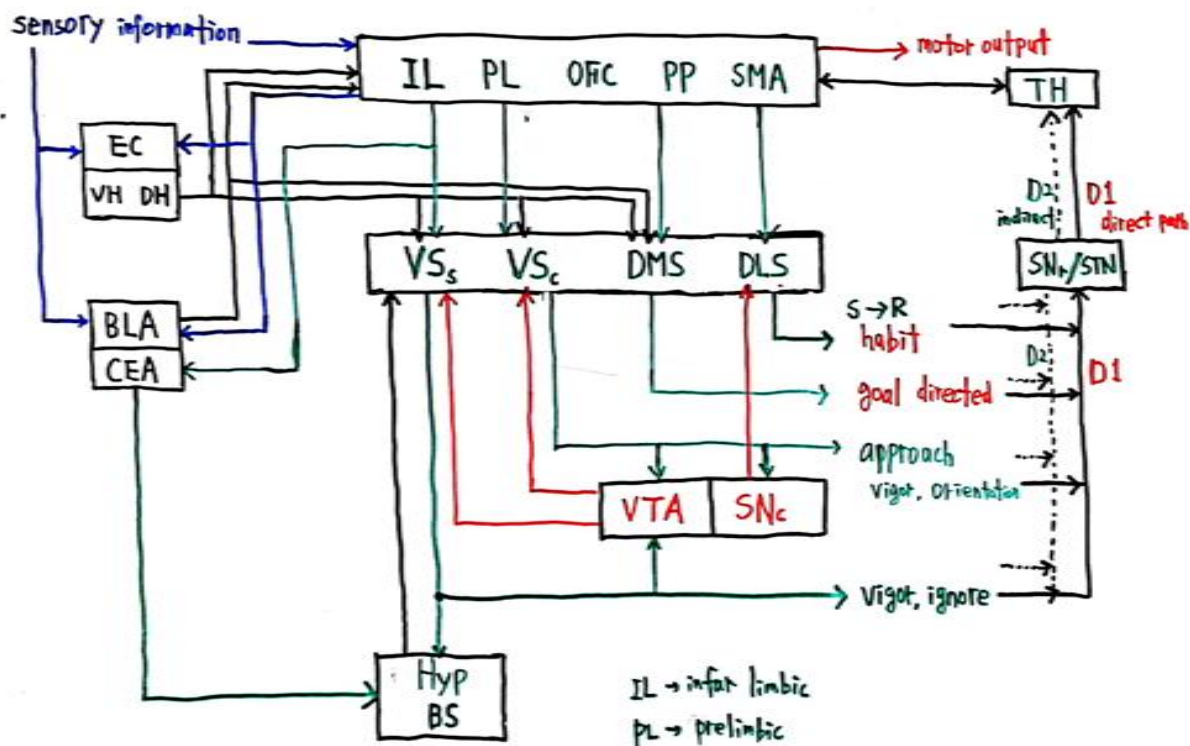 sensory information
motor output
IL PL OFC PP SMA
TH
EC
VH DH
D2
indirect
D1
direct path
VSs VSc DMS DLS
SNr/STN
BLA
CEA
S→R
habit
D2
D1
goal directed
approach
vigor, orientation
VTA SNc
Vigor, ignore
Hyp
BS
IL → infar limbic
PL → prelimbic